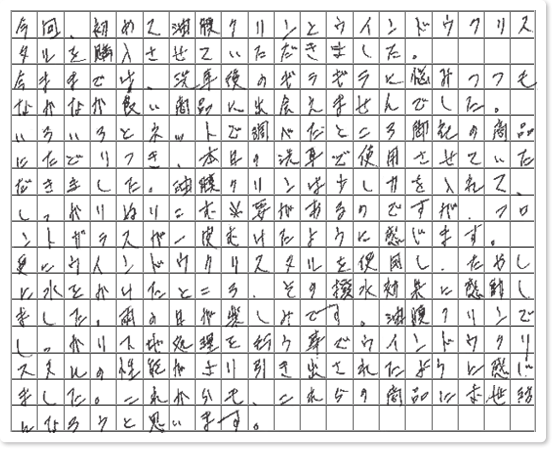 今回、初めて油膜クリンとウインドウクリス
タルを購入させていただきました。
今までは、洗車後のギラギラに悩みつつも
なかなか良い商品に出会えませんでした。
いろいろとネットで調べたところ御社の商品
にたどりつき、本日の洗車で使用させていた
だきました。油膜クリンは少し力を入れて、
しっかりぬりこむ必要があるのですが、フロ
ントガラスが一皮むけたように感じます。
更にウインドウクリスタルを使用し、ためし
に水をかけたところ、その撥水効果に感動し
ました。雨の日が楽しみです。油膜クリンで
しっかり下地処理を行う事でウインドウクリ
スタルの性能がより引き出されたように感じ
ました。これからも、これらの商品にお世話
になろうと思います。